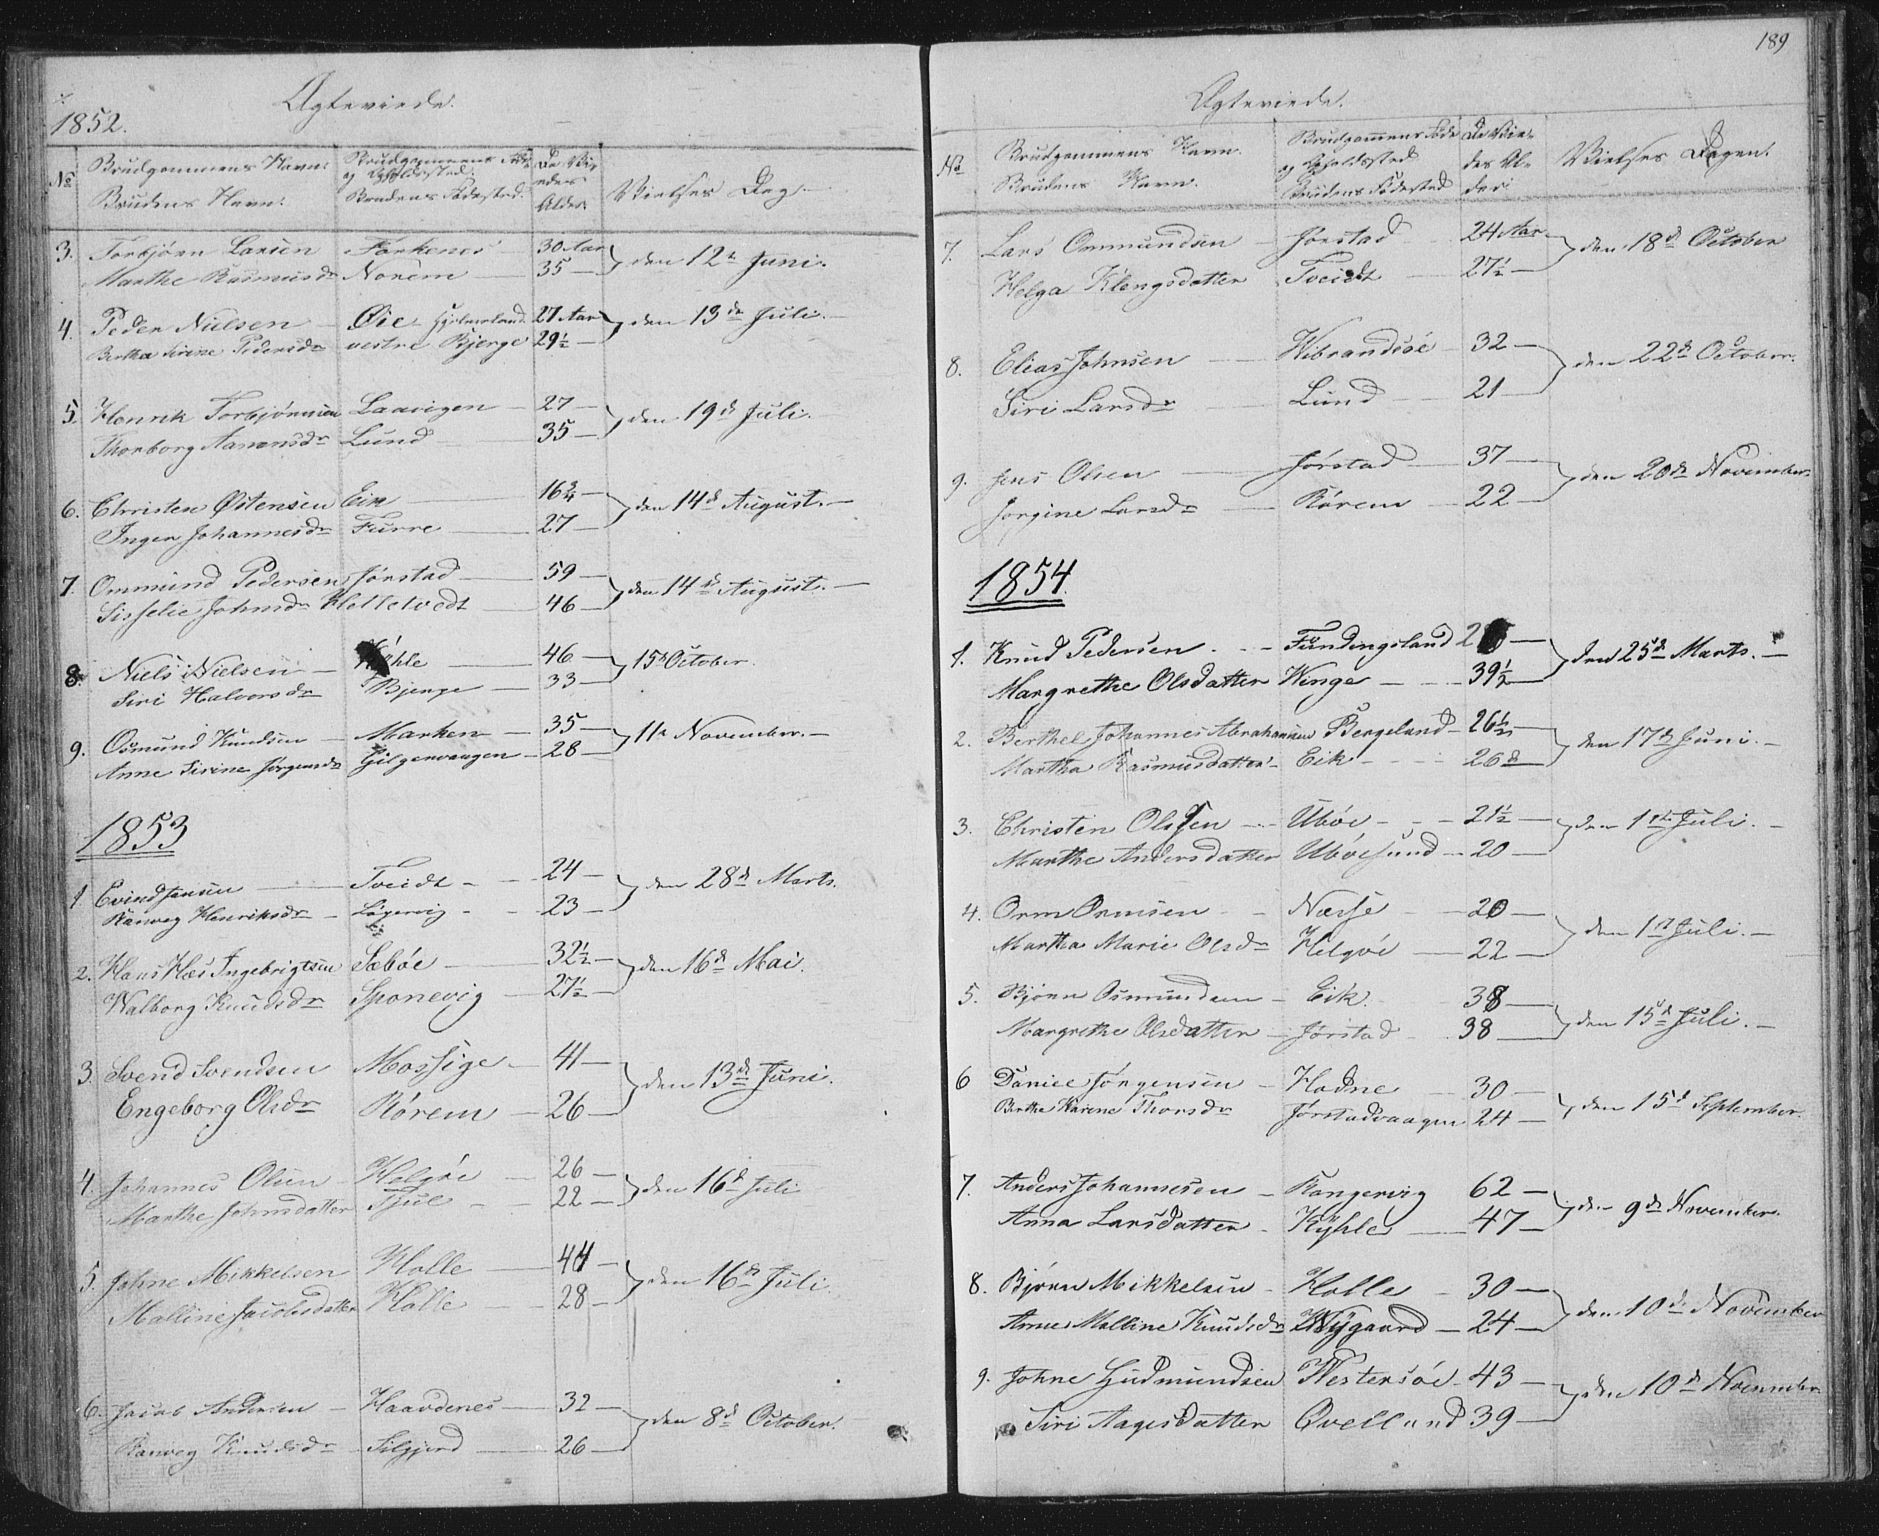 Ægteviede.
1852.
No Brudgommens Navn. Brudgommens Føde og Opholdssted. De Viedes Alder. Vielses Dag
Brudens Navn. Brudens Fødested.
3. Torbjørn Larsen Forkenes 30 Aar
Marthe Rasmusdr Norem 35 — den 12te Juni.
4. Peder Nielsen — Øie Hjelmeland 27 Aar
Bertha Serine Pedersdr vestre Bjerge 29½ — den 13de Juli. —
5. Henrik Torbjørnsen Laavigen — 27 —
Thorborg Aamunsdr Lund 35 — den 19de Juli.
6. Christen Østensen Eie 16¾ —
Inger Johannesdr Furre 27 — den 14de August. —
7. Ommund Pedersen Jørstad — 59 —
Sisselie Johnsdr Helletvedt — 46 — den 14de August. —
8. Niels Nielsen — Kühle — 46 —
Siri Halvorsdr Bjerge — 33 — 15de October.
9. Osmund Knudsen — Marken — 35 —
Anne Serine Jørgensdr Gilgenvaagen — 28 — 11te November. —
1853
1 Evind Jensen — Tveidt — 24 —
Ranveg Henriksdr — Løgervig — 23 — den 28de Marts.
2. Hans Hæs Ingebrigtsen Sæbøe — 32½ —
Walborg Knudsdr Sponevig — 27½ — den 16de Mai.
3. Svend Svendsen Mossige — 41 —
Engeborg Olsdr Rørem — 26 — den 13de Juni.
4. Johannes Olsen — Helgøe — 26 —
Marthe Johnsdatter Fjul — 22 — den 16de Juli
5. Johne Mikkelsen Halle — 44 —
Malline Jacobsdatter Halle — 28 — den 16de Juli
6. Jacob Andersen — Haavdenes — 32 —
Ranveg Knudsdr — Selgjerd — 26 — den 8de October.
189
Ægteviede.
No Brudgommens Navn. Brudgommens Føde og Opholdssted De Viedes Alder Vielses Dagen.
Brudens Navn. Brudens Fødested
7. Lars Ommundsen Jørstad 24 Aar
Helga Klengsdatter Tveidt 27½ — den 18de October
8. Elias Johnsen — Wibrandsøe — 32 —
Siri Larsdr — Lund — 21 — den 22de October.
9. Jens Olsen — Jørstad — 37 —
Jorgine Larsdr — Rørem — 22 — den 20de November.
1854.
1. Knud Pedersen. — Fundingsland
Margrethe Olsdatter Winge — 39½ — den 25de Marts. —
2. Berthel Johannes Abrahamsen Bergeland — 26½ —
Martha Rasmusdatter — Eik — 26 — den 17de Juni. —
3. Christen Olssen — Ubøe — 21½ —
Marthe Andersdatter Ubøesund — 20 — den 1ste Juli. —
4. Orm Ormsen — Næsse — 20 —
Martha Marie Olsdr Helgøe — 22 — den 1ste Juli. —
5. Bjørn Osmundsen — Eik. 38 —
Margrethe Olsdatter — Jørstad — 38 — den 15de Juli. —
6 Daniel Jørgensen — Hadne 30 —
Berthe Karene Thorsdr Jørstadvaagen 24 — den 15de September.
7. Anders Johannesen — Rangervig 62 —
Anna Larsdatter — Kyhle — 47 — den 9de November.
8. Bjørn Mikkelsen — Halle — 30 —
Anne Malline Knudsdr Nÿgaard — 24 — den 10de November
9. Johne Gudmundsen Westersøe — 43 —
Siri Aagesdatter Qvelland 39 — den 10de November